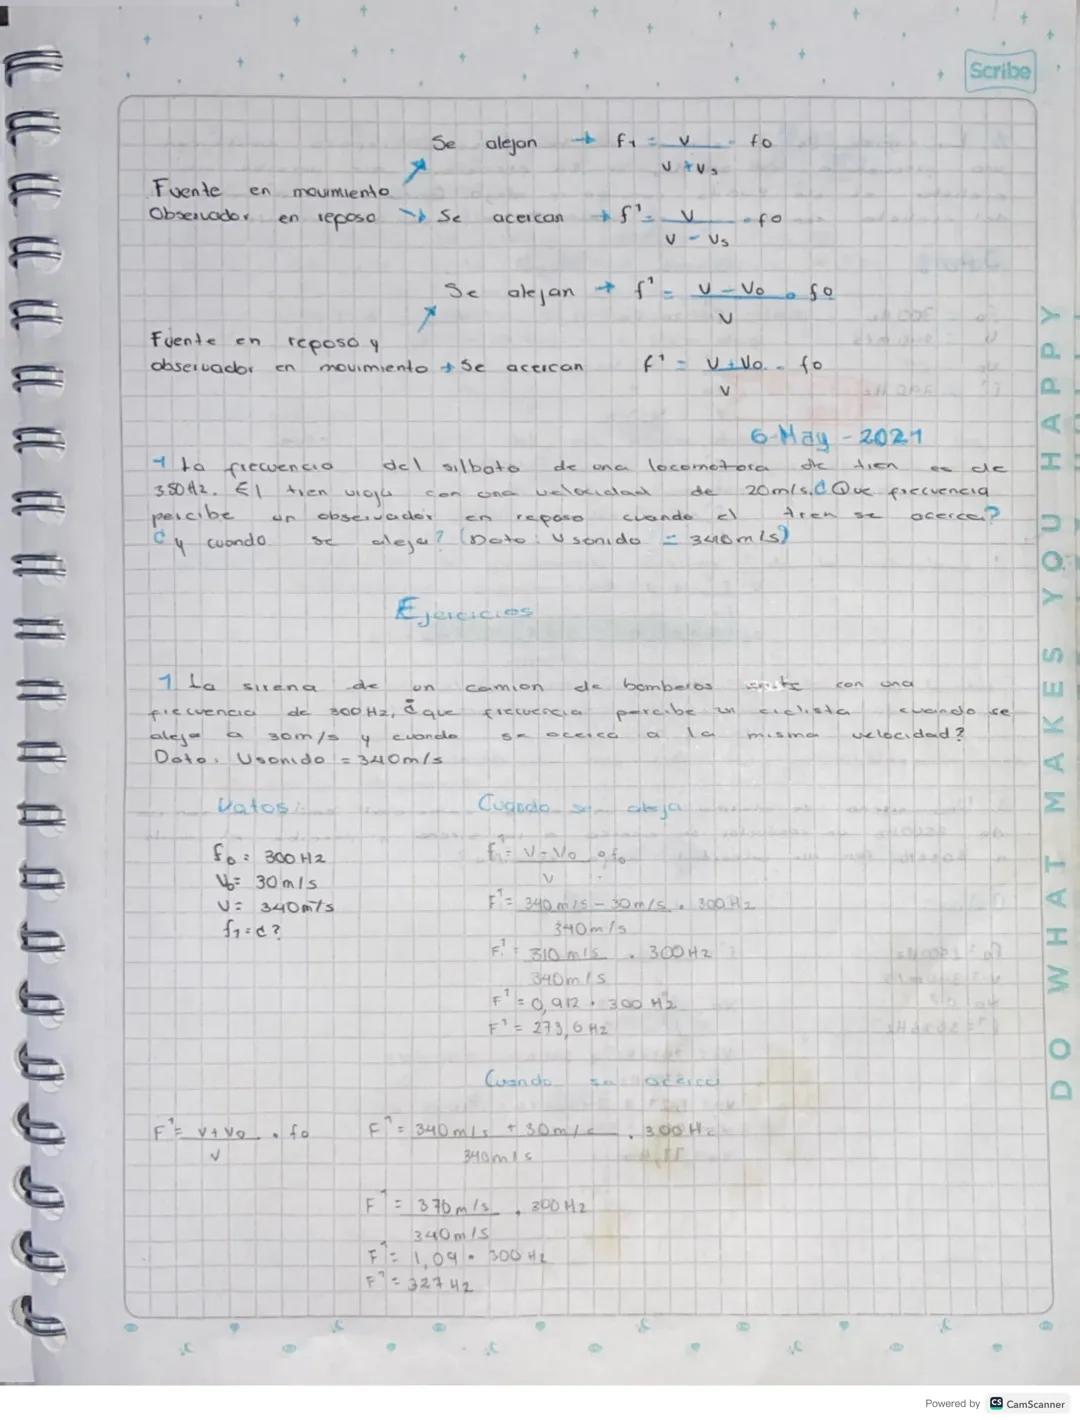 Scribe
Se alejan → f₁ = v / v + vs · fo
Fuente en movimiento
Observador en reposo → Se acercan → f' = v / v - vs · fo
Se alejan → f' = v - vo / v · fo
Fuente en reposo y
observador en movimiento → Se acercan f' = v + vo / v · fo
6-May-2021
1 La frecuencia del silbato de una locomotora de tren es de
350Hz. El tren viaja con una velocidad de 20m/s. ¿Que frecuencia
percibe un observador en reposo cuando el tren se acerca?
¿y cuando se aleja? (Dato: Vsonido = 340m/s)
Ejercicios
1 La sirena de un camion de bomberos con una
frecuencia de 300Hz, ¿que frecuencia percibe un ciclista cuando se
aleja a 30m/s y cuando se acerca a la misma velocidad?
Dato: Vsonido = 340m/s
Datos: Cuando se aleja
fo = 300 Hz f' = v - vo / v · fo
Vo = 30 m/s
V = 340m/s F' = 340 m/s - 30m/s / 340m/s · 300 Hz
f1 = ¿?
F' = 310 m/s / 340m/s · 300 Hz
F' = 0,912 · 300 Hz
F' = 273,6 Hz
Cuando se acerca
F' = v + vo / v · fo F' = 340m/s + 30m/s / 340m/s · 300 Hz
F' = 370m/s / 340m/s · 300 Hz
F' = 1,09 · 300 Hz
F' = 327 Hz
DO WHAT MAKES YOU HAPPY
Powered by CS CamScanner